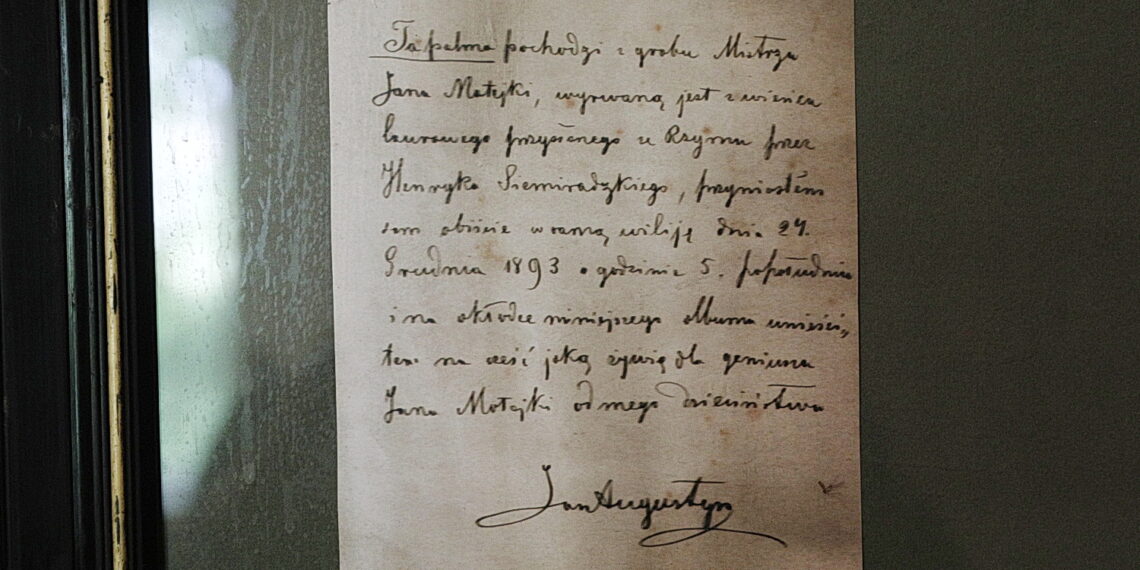 Ta palma pochodzi z grobu Mistrza
Jana Matejki, wyrwaną jest z wieńca
laurowego przysłanego z Rzymu przez
Henryka Siemiradzkiego, przyniosłem
sam obiście w samą wiliję dnia 24.
Grudnia 1893 o godzinie 5. popołudniu
i na okładce niniejszego albumu umieści„
łem na cześć jaką żywię dla geniusza
Jana Matejki od mego dzieciństwa
Jan Augustyn